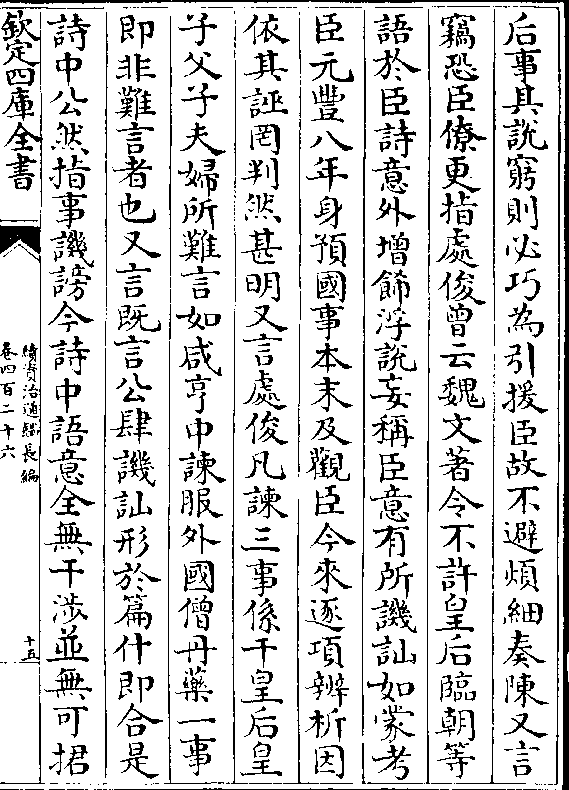 后事具說窮則必巧為引援臣故不避煩細奏陳又言
竊恐臣僚更指處俊曾云魏文著令不許皇后臨朝等
語於臣詩意外增飾浮說妄稱臣意有所譏訕如蒙考
臣元豐八年身預國事本末及觀臣今來逐項辨析因
依其誣罔判然甚明又言處俊凡諫三事係干皇后皇
子父子夫婦所難言如咸亨中諫服外國僧丹藥一事
即非難言者也又言既言公肆譏訕形於篇什即合是
詩中公然指事譏謗今詩中語意全無干涉並無可捃
欽定四庫全書
續資治通鑑長編
卷四百二十六
十五